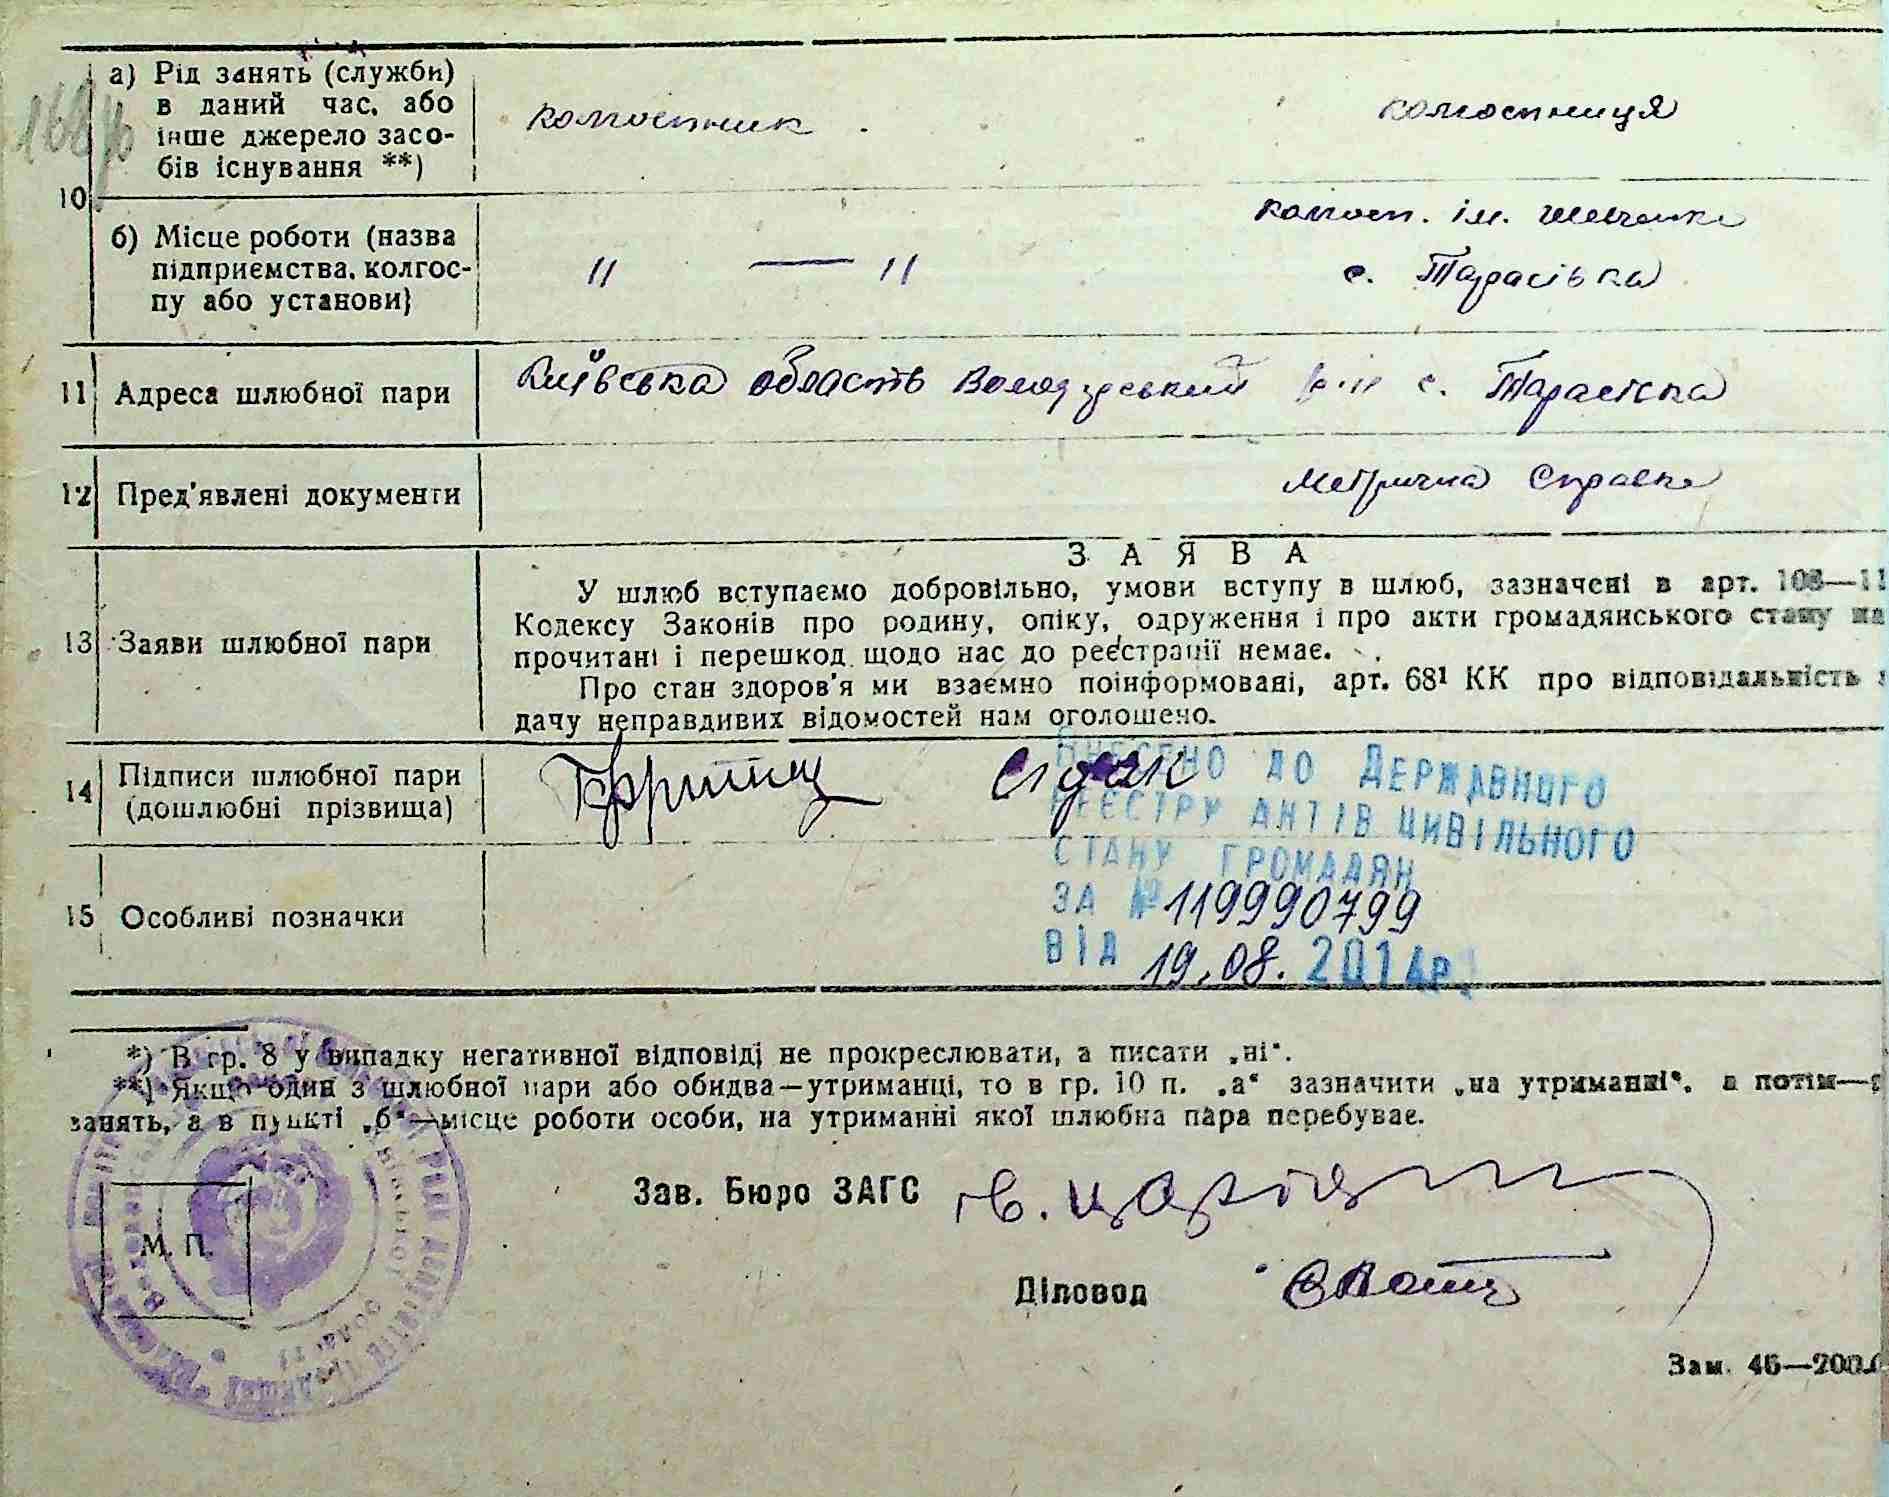 а) Рід занять (служби)
в даний час, або
інше джерело засо-
бів існування **)
колгоспник
колгоспниця
10
б) Місце роботи (назва
підприємства, колгос-
пу або установи)
" — "
колгосп. ім. Шевченка
с. Тарасівка
11 Адреса шлюбної пари
Київська область Володарський р-н с. Тарасівка
12 Пред'явлені документи
Метрична Справка
13 Заяви шлюбної пари
ЗАЯВА
У шлюб вступаємо добровільно, умови вступу в шлюб, зазначені в арт. 108—11
Кодексу Законів про родину, опіку, одруження і про акти громадянського стану на
прочитані і перешкод щодо нас до реєстрації немає.
Про стан здоров'я ми взаємно поінформовані, арт. 68¹ КК про відповідальність
дачу неправдивих відомостей нам оголошено.
14 Підписи шлюбної пари
(дошлюбні прізвища)
ВНЕСЕНО ДО ДЕРЖАВНОГО
РЕЄСТРУ АКТІВ ЦИВІЛЬНОГО
СТАНУ ГРОМАДЯН
ЗА № 119990799
ВІД 19.08. 2014р.
15 Особливі позначки
*) В гр. 8 у випадку негативної відповіді не прокреслювати, а писати „ні".
**) Якщо один з шлюбної пари або обидва—утриманці, то в гр. 10 п. „а" зазначити „на утриманні", а потім—
занять, а в пункті „б"—місце роботи особи, на утриманні якої шлюбна пара перебуває.
Зав. Бюро ЗАГС
М. П.
Діловод
Зам. 46—200